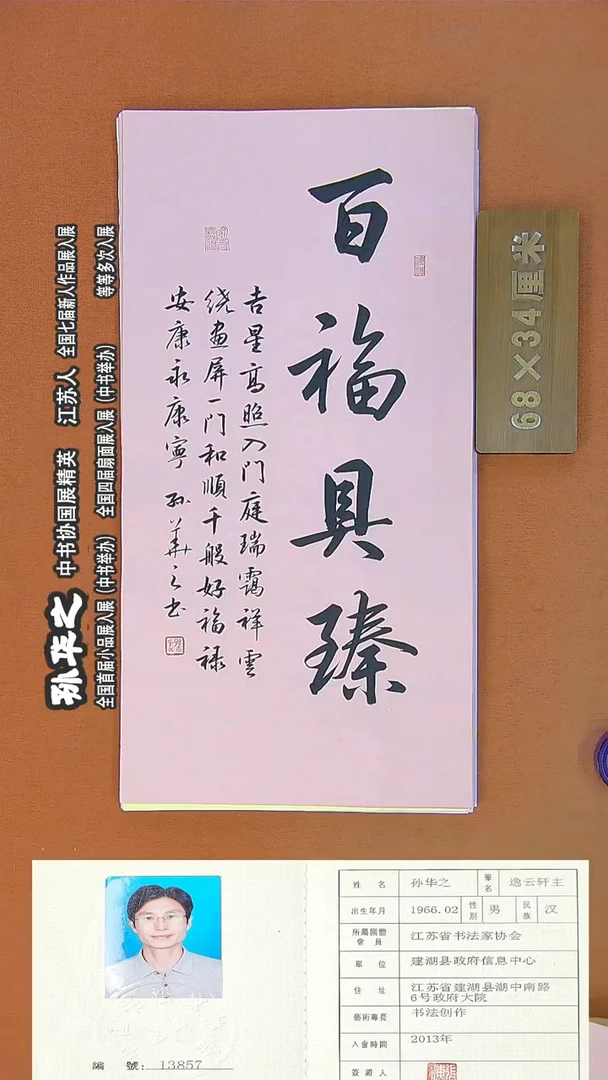 百福具臻
吉星高照入门庭瑞霭祥雲
绕画屏一门和順千般好福禄
安康永康寧 孙華之书
68×34厘米
孙华之 中书协国展精英 江苏人 全国七届新人作品展入展
全国首届小品展入展（中书举办） 全国四届扇面展入展（中书举办） 等等多次入展
姓名 孙华之 筆名 逸云轩主
出生年月 1966.02 性别 男 民族 汉
所屬團體會員 江苏省书法家协会
單位 建湖县政府信息中心
住址 江苏省建湖县湖中南路6号政府大院
藝術專長 书法创作
入會時間 2013年
簽證人
编號：13857